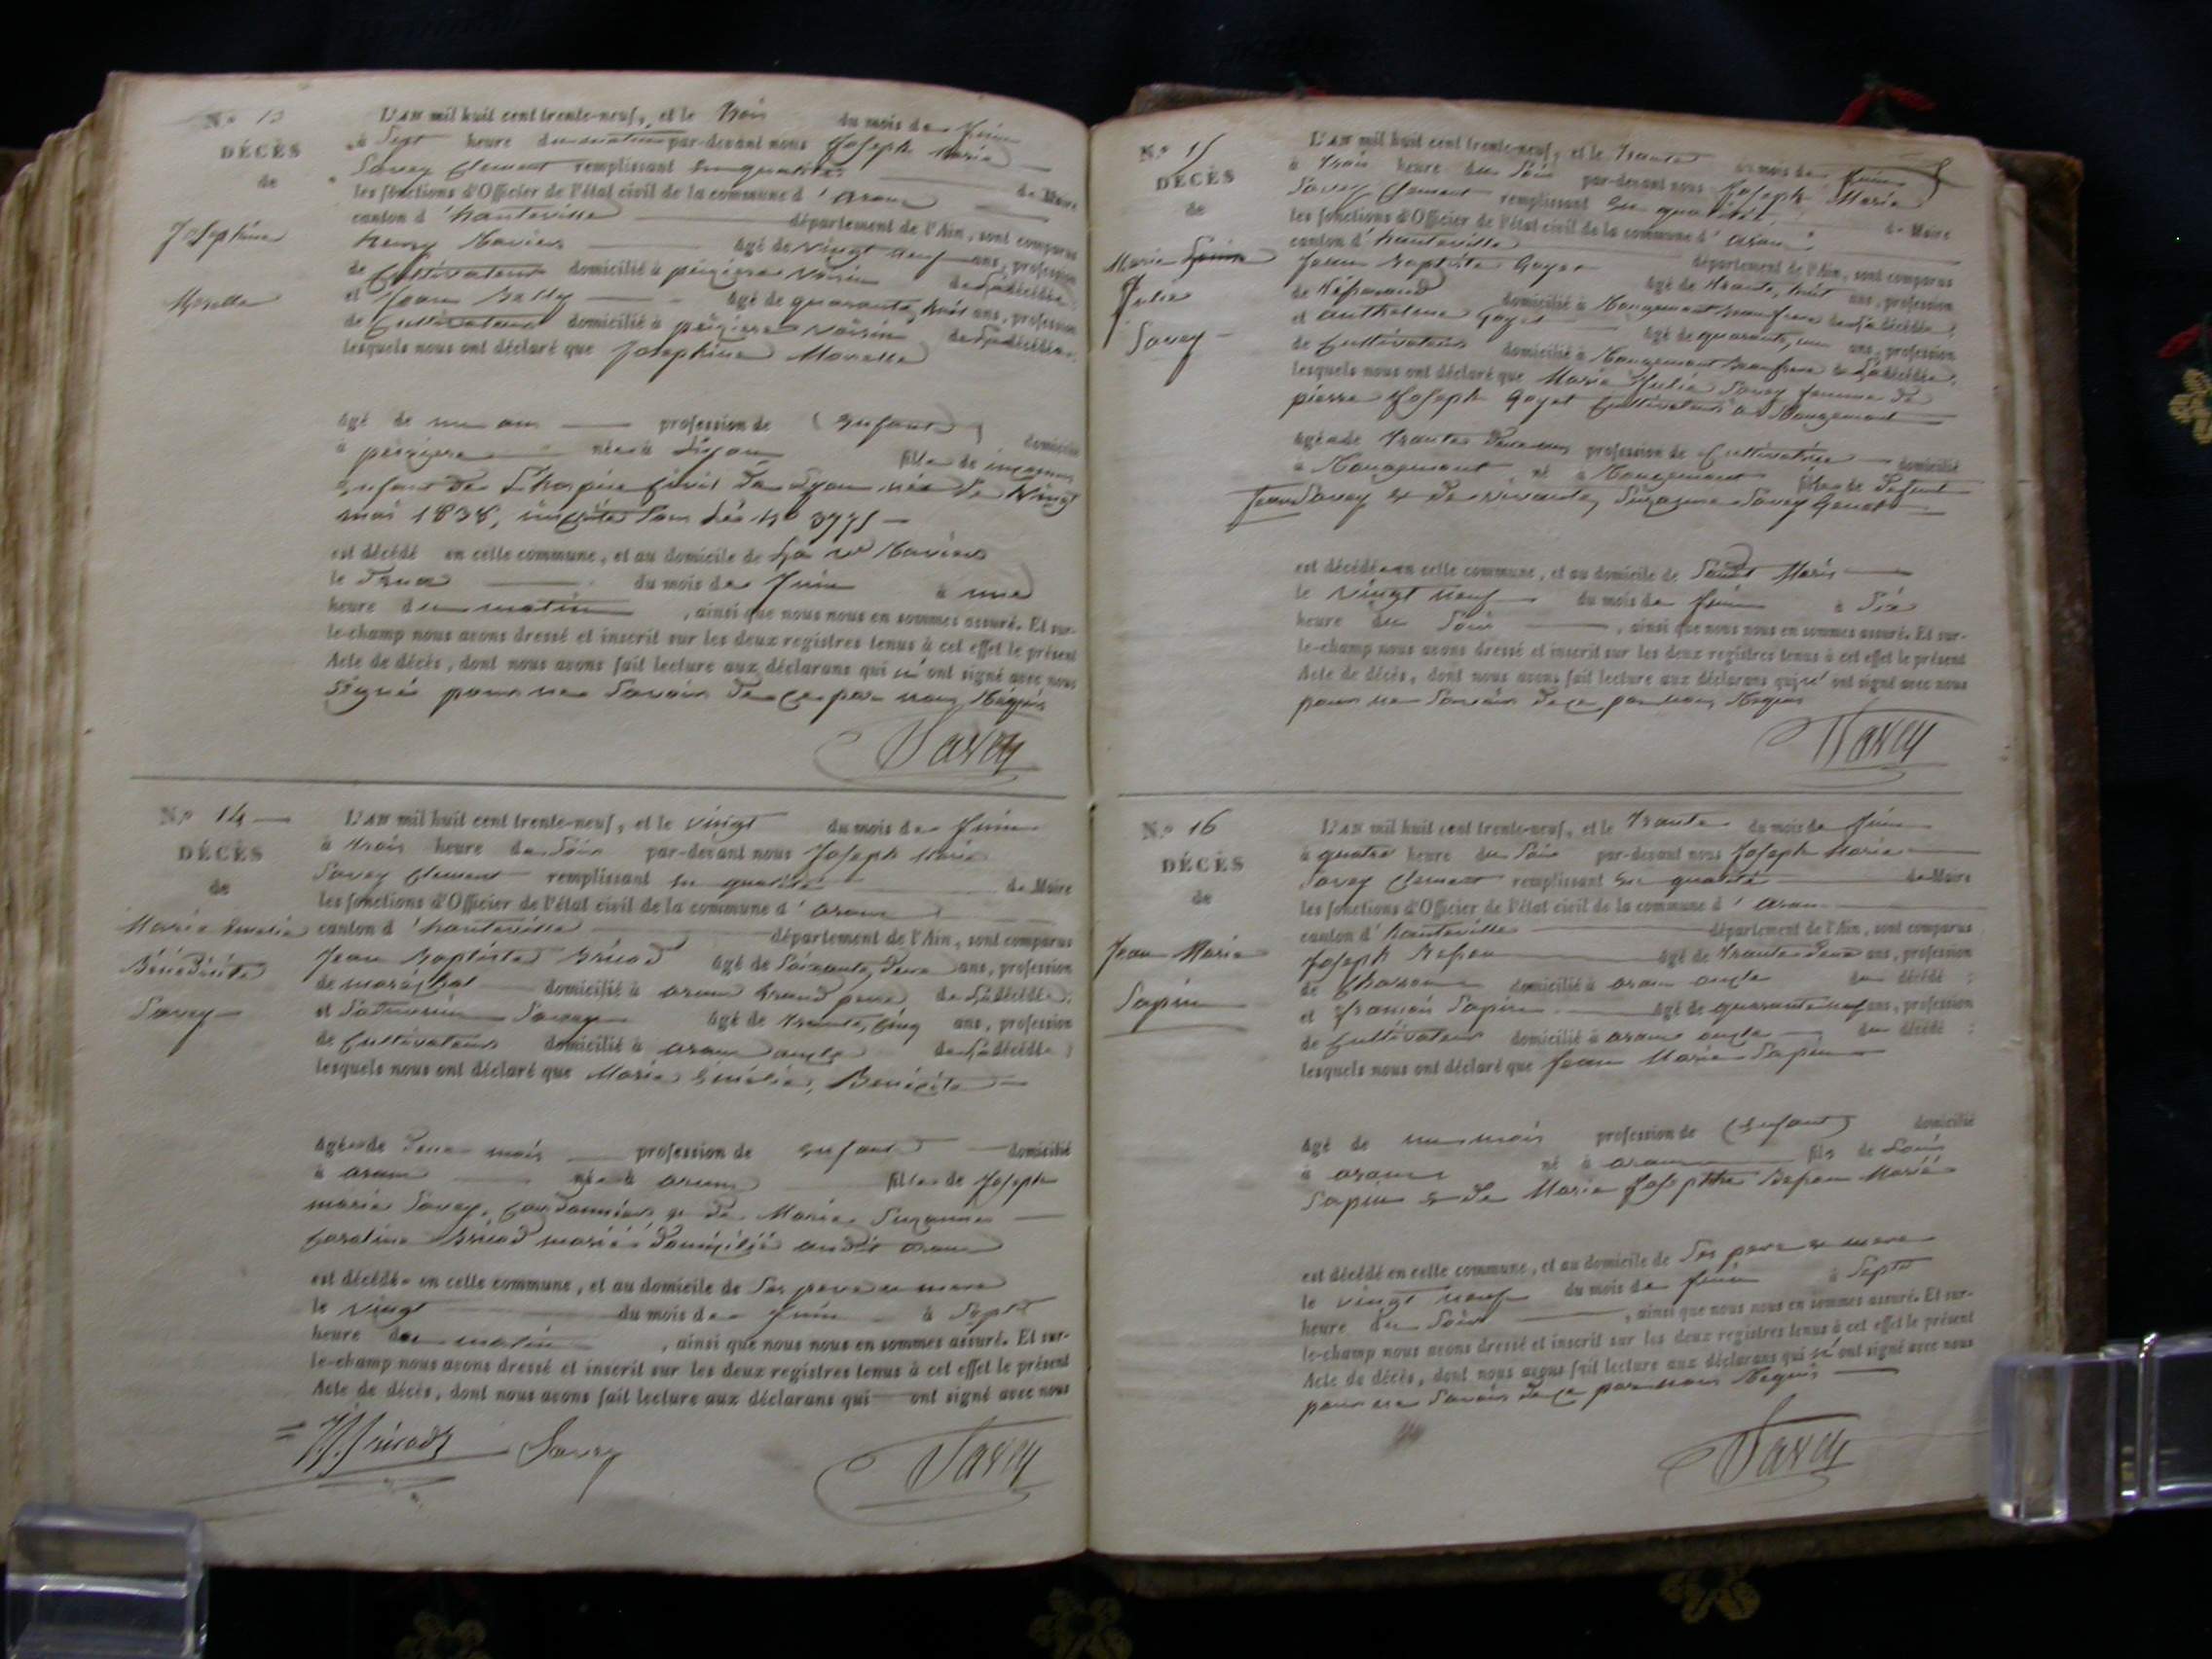 N.º 13
DÉCÈS
de
Josephine
Morelle
L'AN mil huit cent trente-neuf, et le trois du mois de Juin
à Sept heure du matin par-devant nous Joseph Marie
Savey Clement remplissant en qualité de Maire
les fonctions d'Officier de l'état civil de la commune d'aranc
canton d'hauteville département de l'Ain, sont comparus
henry agé de vingt neuf ans, profession
de Cultivateur domicilié à voisin de La décédée
et Jean agé de quarante huit ans, profession
de Cultivateur domicilié à voisin de La décédée
lesquels nous ont déclaré que Josephine Morelle
agé de un an profession de (enfant) domicilié
à née à Lyon fille de inconnus
enfant de L'hospice Civil de Lyon née le vingt
mai 1838, sous Les No 3775
est décédé en cette commune, et au domicile de La ve
le deux du mois de Juin à une
heure du matin, ainsi que nous nous en sommes assuré. Et sur-
le-champ nous avons dressé et inscrit sur les deux registres tenus à cet effet le présent
Acte de décès, dont nous avons fait lecture aux déclarans qui n'ont signé avec nous
Signé pour ne Savoir de ce par nous Réquis
Savey
N.º 14
DÉCÈS
de
Marie Emelie
Bénédicte
Savey
L'AN mil huit cent trente-neuf, et le vingt du mois de Juin
à trois heure du Soir par-devant nous Joseph Marie
Savey Clement remplissant en qualité de Maire
les fonctions d'Officier de l'état civil de la commune d'aranc
canton d'hauteville département de l'Ain, sont comparus
Jean Baptiste agé de Soixante deux ans, profession
de maréchal domicilié à aranc Grand pere de La décédée;
et Saturnin Savey agé de trente Cinq ans, profession
de Cultivateur domicilié à aranc oncle de La décédée;
lesquels nous ont déclaré que Marie Emelie, Benedicte
agée de deux mois profession de enfant domicilié
à aranc née à aranc fille de Joseph
marie Savey, Cordonnier et de Marie Suzanne
Caroline mariés domiciliés audit aranc
est décédée en cette commune, et au domicile de Ses pere et mere
le vingt du mois de Juin à Sept
heure du matin, ainsi que nous nous en sommes assuré. Et sur-
le-champ nous avons dressé et inscrit sur les deux registres tenus à cet effet le présent
Acte de décès, dont nous avons fait lecture aux déclarans qui ont signé avec nous
Savey Savey
N.º 15
DÉCÈS
de
Marie
Julie
Savey
L'AN mil huit cent trente-neuf, et le trante du mois de Juin
à trois heure du Soir par-devant nous Joseph Marie
Savey Clement remplissant en qualité de Maire
les fonctions d'Officier de l'état civil de la commune d'aranc
canton d'hauteville département de l'Ain, sont comparus
Jean Baptiste Goyet agé de trante, huit ans, profession
de domicilié à Rougemont beau frere de La décédée;
et anthelme Goyet agé de quarante, un ans, profession
de Cultivateur domicilié à Rougemont beau frere de La décédée,
lesquels nous ont déclaré que Marie Julie Savey femme de
pierre Joseph Goyet Cultivateur a Rougemont
agée de trante deux ans profession de Cultivatrice domicilié
à Rougemont né à Rougemont fille de defunt
Jean Savey et de vivante, Suzanne Savey
est décédée en cette commune, et au domicile de Sondit Maris
le vingt neuf du mois de Juin à Six
heure du Soir, ainsi que nous nous en sommes assuré. Et sur-
le-champ nous avons dressé et inscrit sur les deux registres tenus à cet effet le présent
Acte de décès, dont nous avons fait lecture aux déclarans qui n'ont signé avec nous
pour ne Savoir de ce par nous Requis
Savey
N.º 16
DÉCÈS
de
Jean Marie
Sapin
L'AN mil huit cent trente-neuf, et le trante du mois de Juin
à quatre heure du Soir par-devant nous Joseph Marie
Savey Clement remplissant en qualité de Maire
les fonctions d'Officier de l'état civil de la commune d'aranc
canton d'hauteville département de l'Ain, sont comparus
Joseph agé de trante deux ans, profession
de domicilié à aranc oncle du décédé;
et françois Sapin agé de quarante neuf ans, profession
de Cultivateur domicilié à aranc oncle du décédé;
lesquels nous ont déclaré que Jean Marie Sapin
agé de un mois profession de (enfant) domicilié
à aranc né à aranc fils de Louis
Sapin et de Marie Josephte Mariés
est décédé en cette commune, et au domicile de Ses pere et mere
le vingt neuf du mois de Juin à Sept
heure du Soir, ainsi que nous nous en sommes assuré. Et sur-
le-champ nous avons dressé et inscrit sur les deux registres tenus à cet effet le présent
Acte de décès, dont nous avons fait lecture aux déclarans qui n'ont signé avec nous
pour ne Savoir de ce par nous Requis
Savey